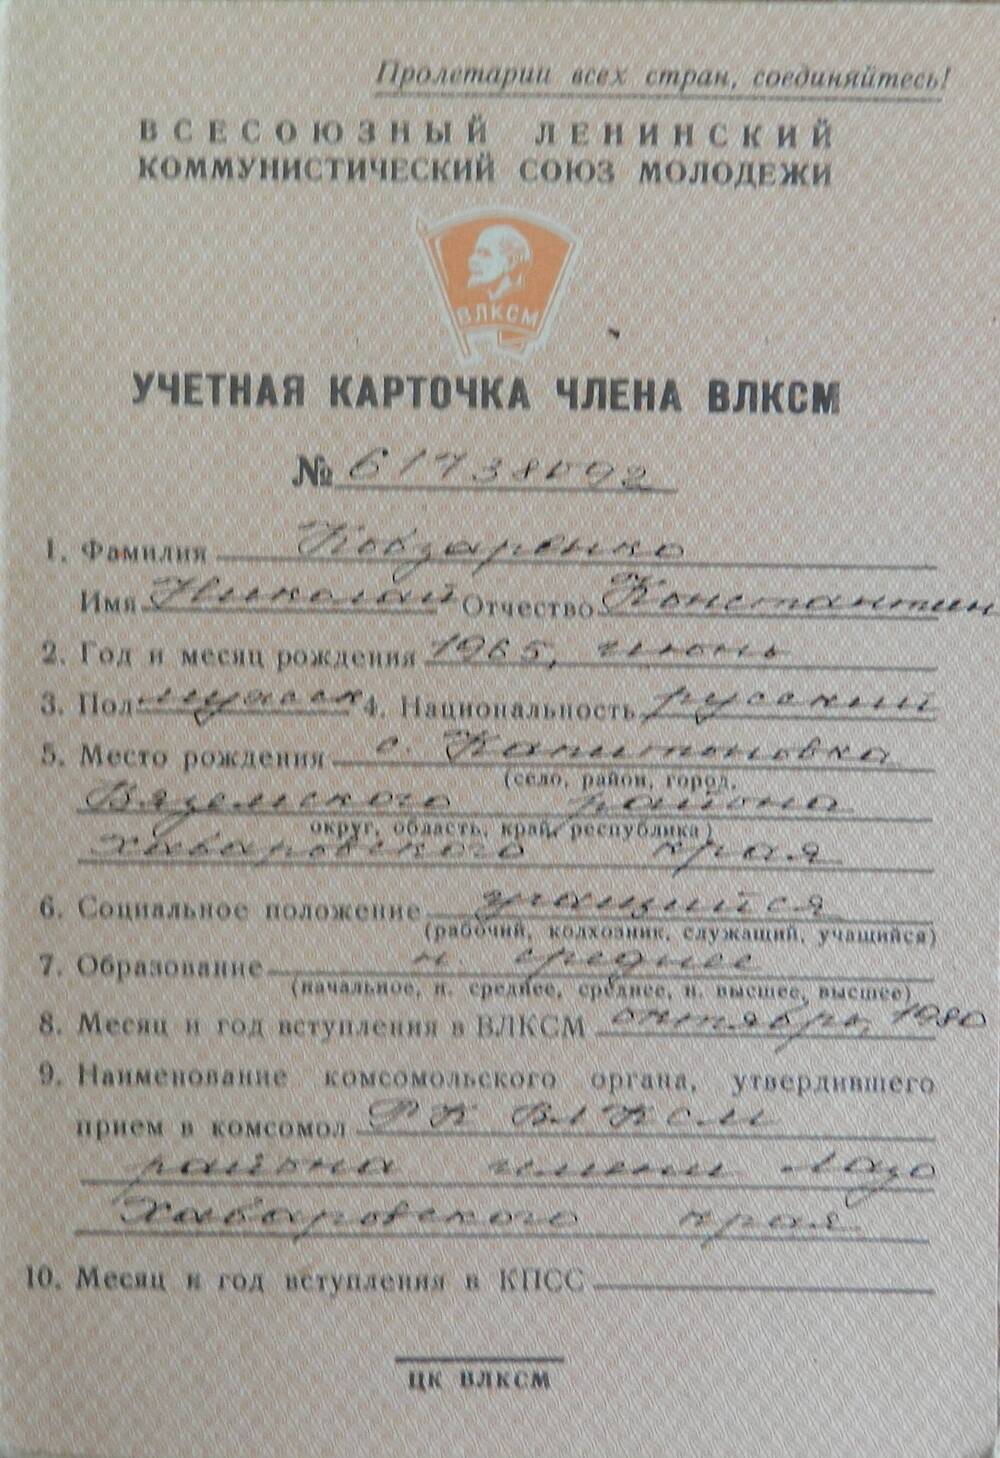 Пролетарии всех стран, соединяйтесь!
ВСЕСОЮЗНЫЙ ЛЕНИНСКИЙ
КОММУНИСТИЧЕСКИЙ СОЮЗ МОЛОДЕЖИ
ВЛКСМ
УЧЕТНАЯ КАРТОЧКА ЧЛЕНА ВЛКСМ
№ 61738592
1. Фамилия Кобзаренко
Имя Николай Отчество Константин
2. Год и месяц рождения 1965, июнь
3. Пол мужск 4. Национальность русский
5. Место рождения с. Капитоновка
(село, район, город,
Вяземского района
округ, область, край, республика)
Хабаровского края
6. Социальное положение учащийся
(рабочий, колхозник, служащий, учащийся)
7. Образование н. среднее
(начальное, н. среднее, среднее, н. высшее, высшее)
8. Месяц и год вступления в ВЛКСМ октябрь, 1980
9. Наименование комсомольского органа, утвердившего
прием в комсомол РК ВЛКСМ
района имени Лазо
Хабаровского края
10. Месяц и год вступления в КПСС
ЦК ВЛКСМ